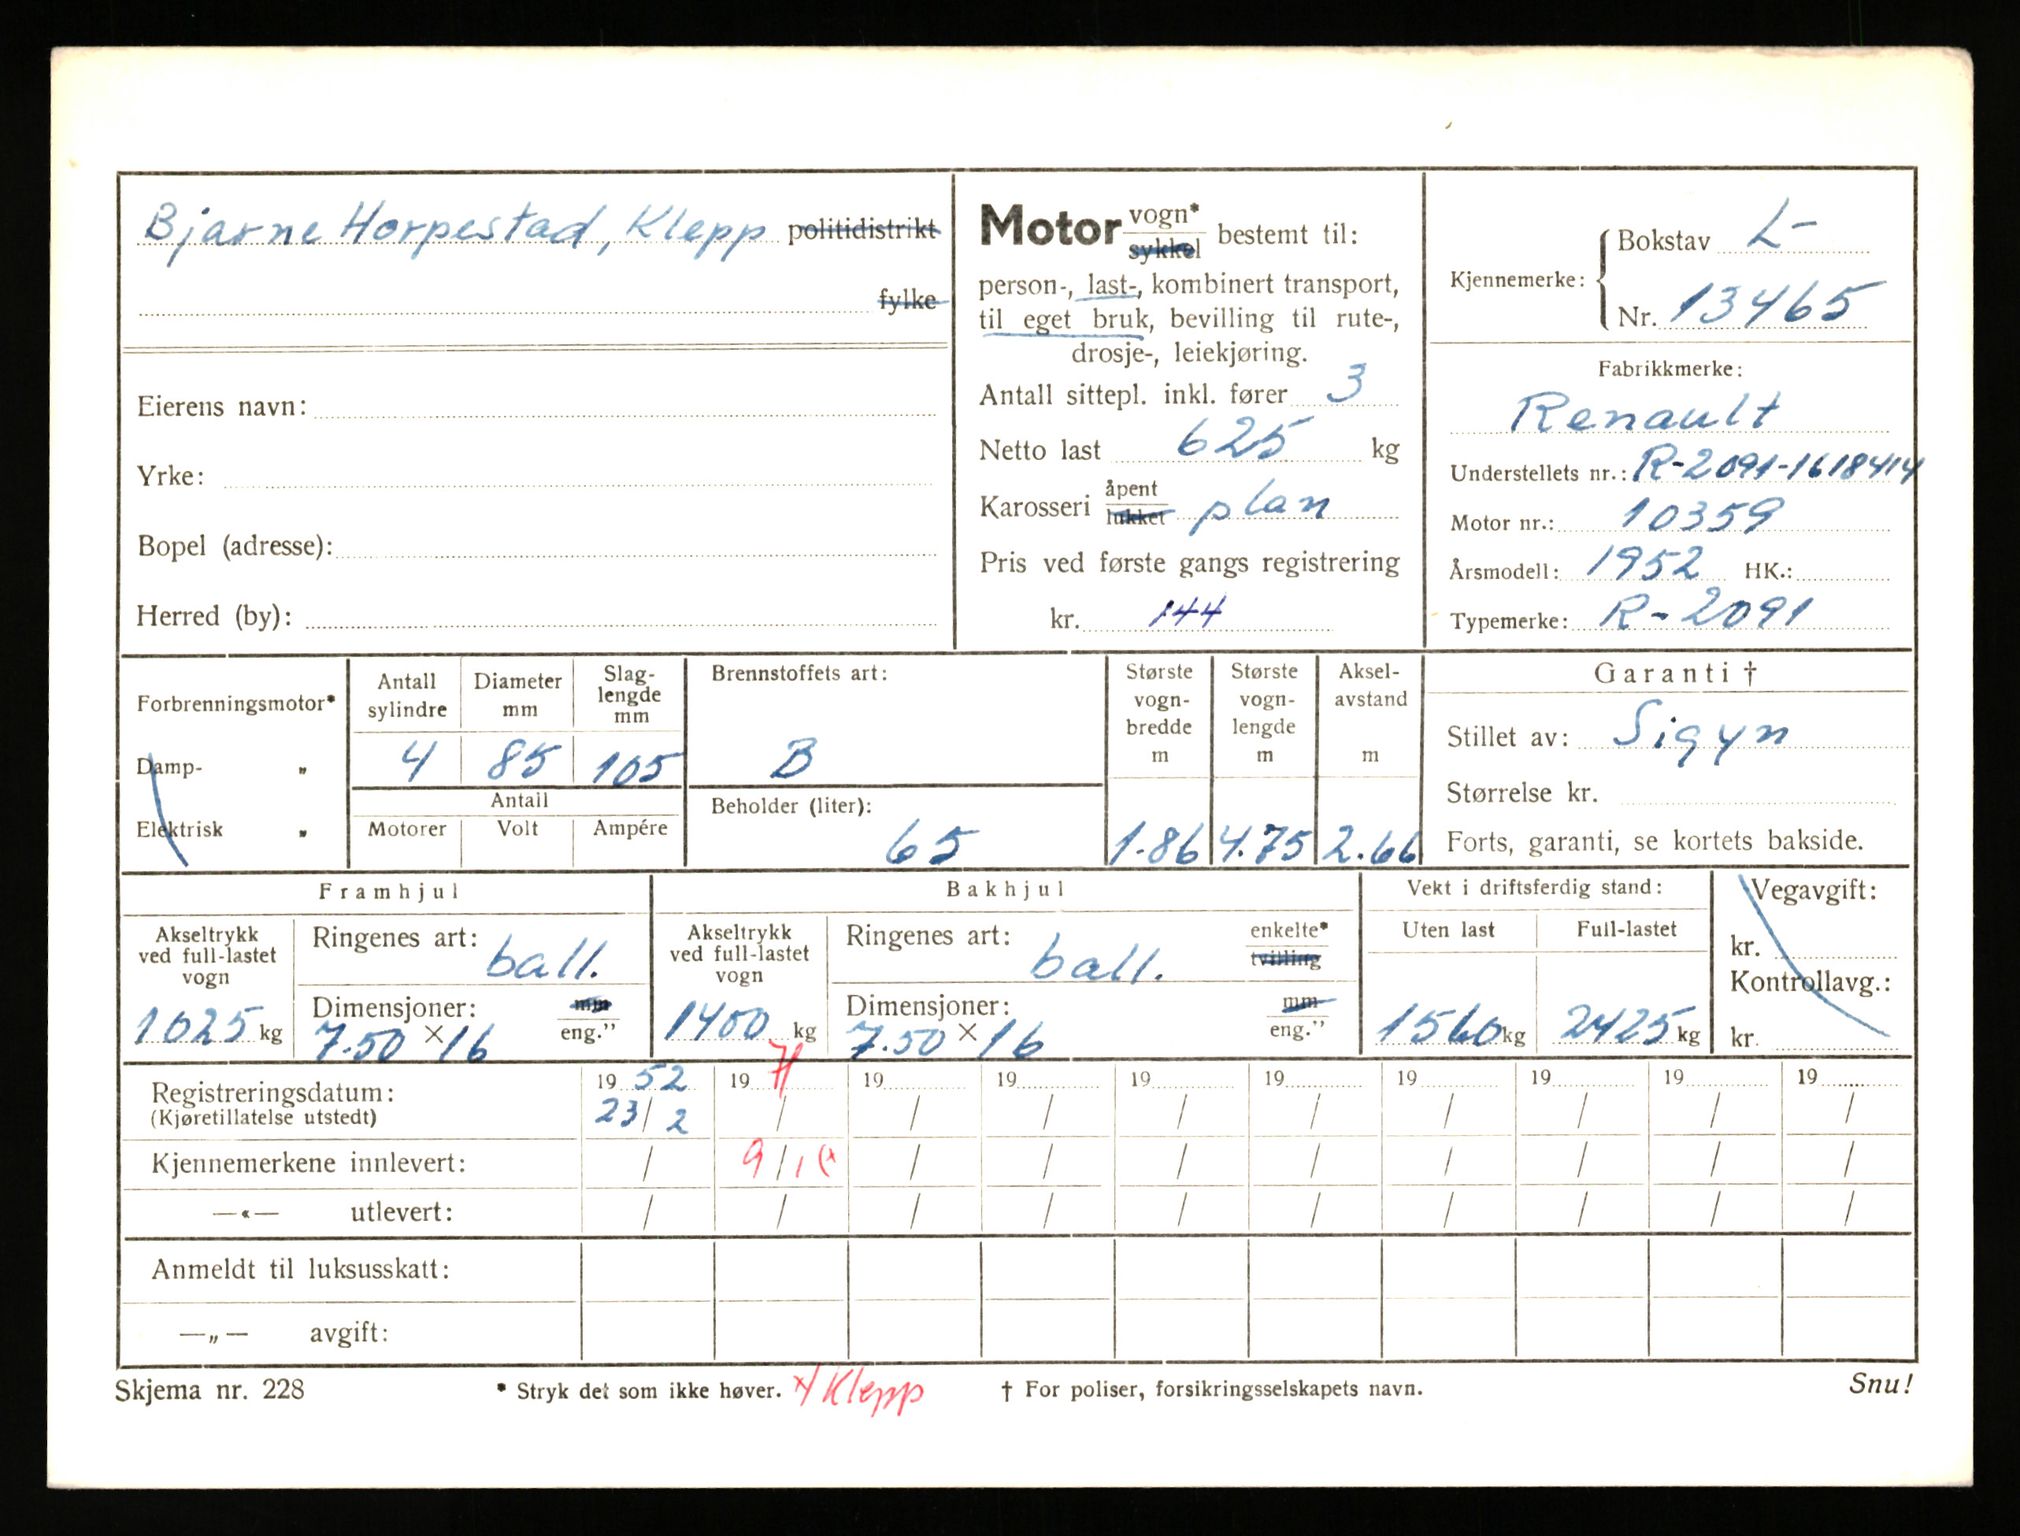 Bjarne Horpestad, Klepp politidistrikt
fylke
Eierens navn:
Yrke:
Bopel (adresse):
Herred (by):
Motor vogn* sykkel bestemt til:
person-, last-, kombinert transport,
til eget bruk, bevilling til rute-,
drosje-, leiekjøring.
Antall sittepl. inkl. fører 3
Netto last 625 kg
Karosseri åpent lukket plan
Pris ved første gangs registrering
kr. 144
Kjennemerke: Bokstav L-
Nr. 13465
Fabrikkmerke:
Renault
Understellets nr.: R-2091-1618414
Motor nr.: 10359
Årsmodell: 1952 HK.:
Typemerke: R-2091
Forbrenningsmotor*
Damp- "
Elektrisk "
Antall sylindre Diameter mm Slaglengde mm
4 85 105
Antall
Motorer Volt Ampére
Brennstoffets art:
B
Beholder (liter):
65
Største vognbredde m Største vognlengde m Akselavstand m
1.86 4.75 2.66
Garanti †
Stillet av: Sigyn
Størrelse kr.
Forts, garanti, se kortets bakside.
Framhjul
Akseltrykk ved full-lastet vogn
1025 kg
Ringenes art: ball.
Dimensjoner: mm eng."
7.50 × 16
Bakhjul
Akseltrykk ved full-lastet vogn
1400 kg
Ringenes art: ball. enkelte* tvilling
Dimensjoner: mm eng."
7.50 × 16
Vekt i driftsferdig stand:
Uten last Full-lastet
1560 kg 2425 kg
Vegavgift:
kr.
Kontrollavg.:
kr.
Registreringsdatum: 19 52 19 19 19 19 19 19 19 19 19
(Kjøretillatelse utstedt) 23/2 / / / / / / / / /
Kjennemerkene innlevert: / 9/ / / / / / / / /
—«— utlevert: / / / / / / / / / /
Anmeldt til luksusskatt:
—„— avgift:
Skjema nr. 228 * Stryk det som ikke høver. Klepp † For poliser, forsikringsselskapets navn. Snu!